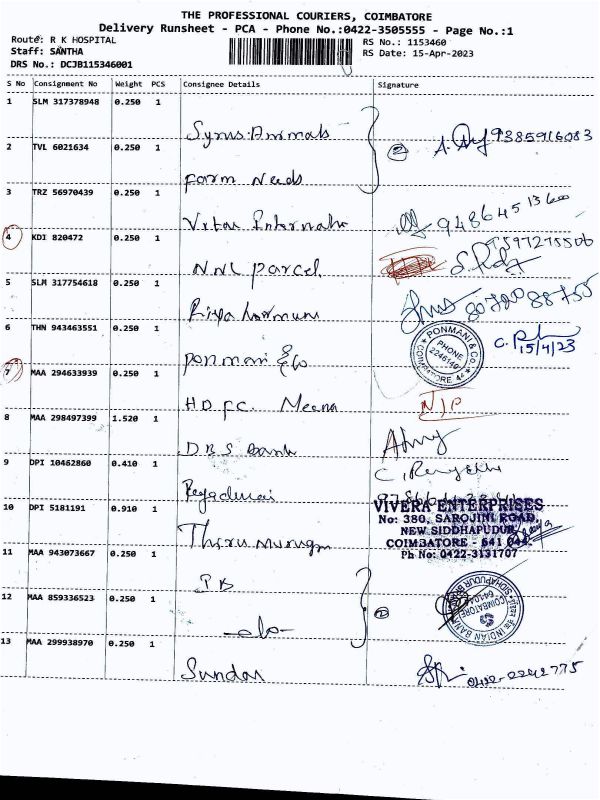 THE PROFESSIONAL COURIERS, COIMBATORE
Delivery Runsheet - PCA - Phone No.:0422-3505555 - Page No.:1
Route: R K HOSPITAL
Staff: SANTHA
DRS No.: DCJB115346001
RS No.: 1153460
RS Date: 15-Apr-2023
S No Consignment No Weight PCS Consignee Details Signature
1 SLM 317378948 0.250 1
Syrus Animals
2 TVL 6021634 0.250 1
② 9385916083
Farm Needs
3 TRZ 56970439 0.250 1
Vital
4 KDI 820472 0.250 1
NNL parcel
5 SLM 317754618 0.250 1
Riya
6 THN 943463551 0.250 1
Ponmani & Co
PONMANI & CO.
PHONE
COIMBATORE
15/4/23
7 MAA 294633939 0.250 1
HDFC Meena
8 MAA 298497399 1.520 1
DBS Bank
9 DPI 10462860 0.410 1
10 DPI 5181191 0.910 1
VIVERA ENTERPRISES
No: 380, SAROJINI ROAD,
NEW SIDDHAPUDUR,
COIMBATORE - 641 044
Ph No: 0422-3131707
Thirumurugan
11 MAA 943073667 0.250 1
IB
12 MAA 859336523 0.250 1
②
INDIAN BANK
COIMBATORE
-do-
13 MAA 299938970 0.250 1
Sundar
0422-2242775